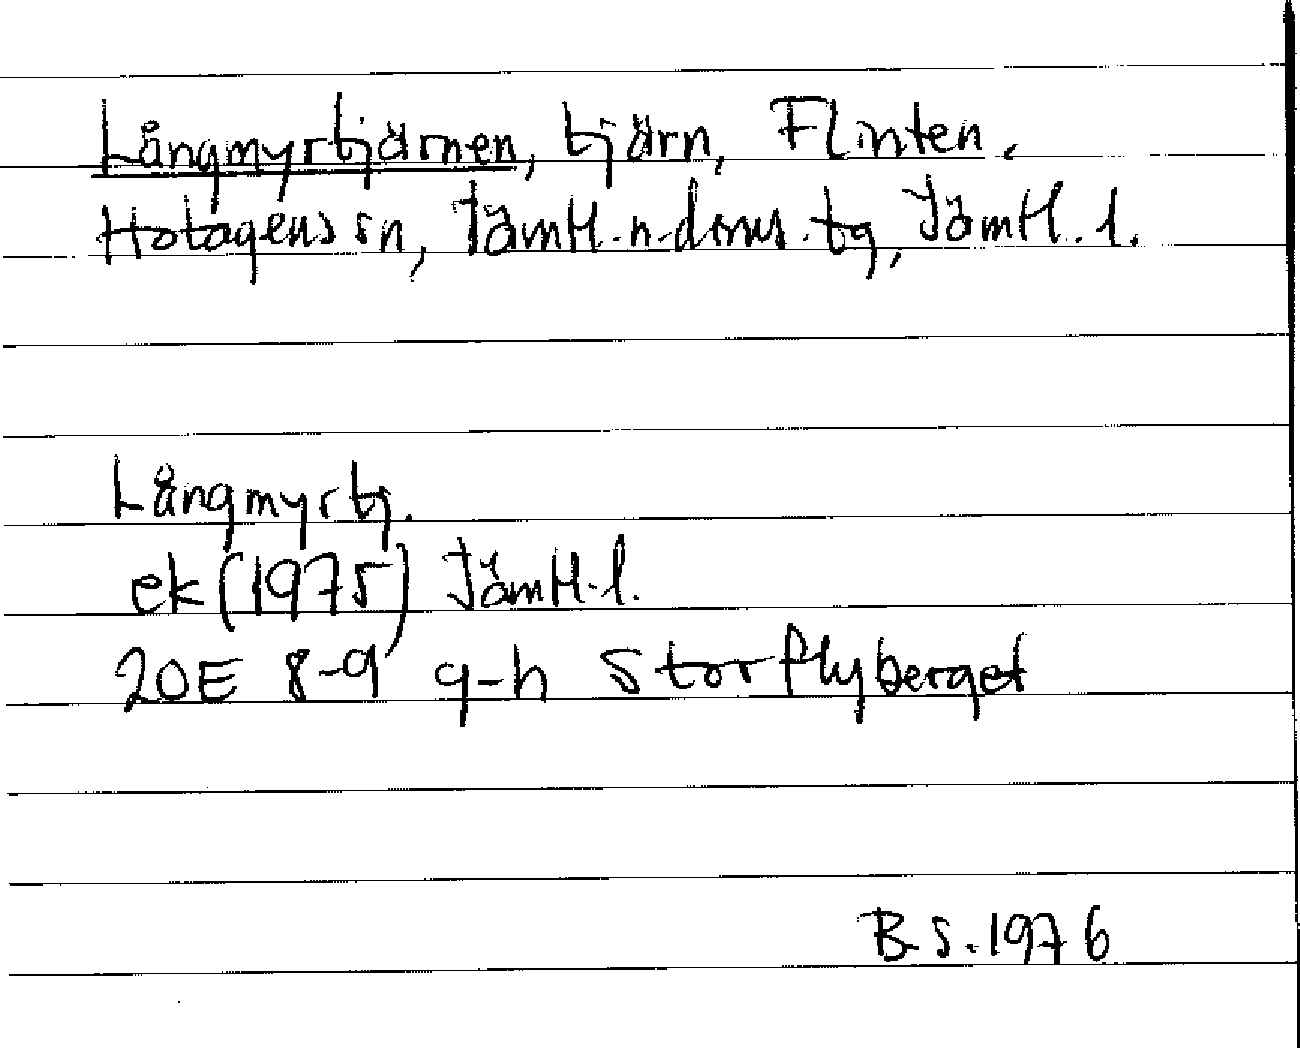 Långmyrtjärnen, tjärn, Flinten.
Hotagens sn, Jämtl. n. doms. tg, Jämtl. l.
Långmyrtj.
ek (1975) Jämtl. l.
20E 8-9 g-h Storflyberget
B.S. 1976